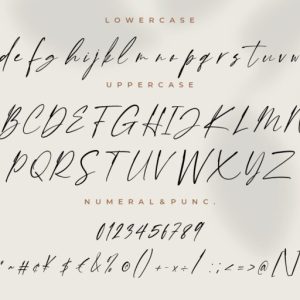 LOWERCASE
defghijklmnopqrstuvw
UPPERCASE
BCDEFGHIJKLMN
PQRSTUVWXYZ
NUMERAL&PUNC.
0123456789